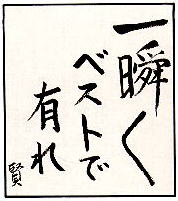 一瞬く
ベストで
有れ
賢